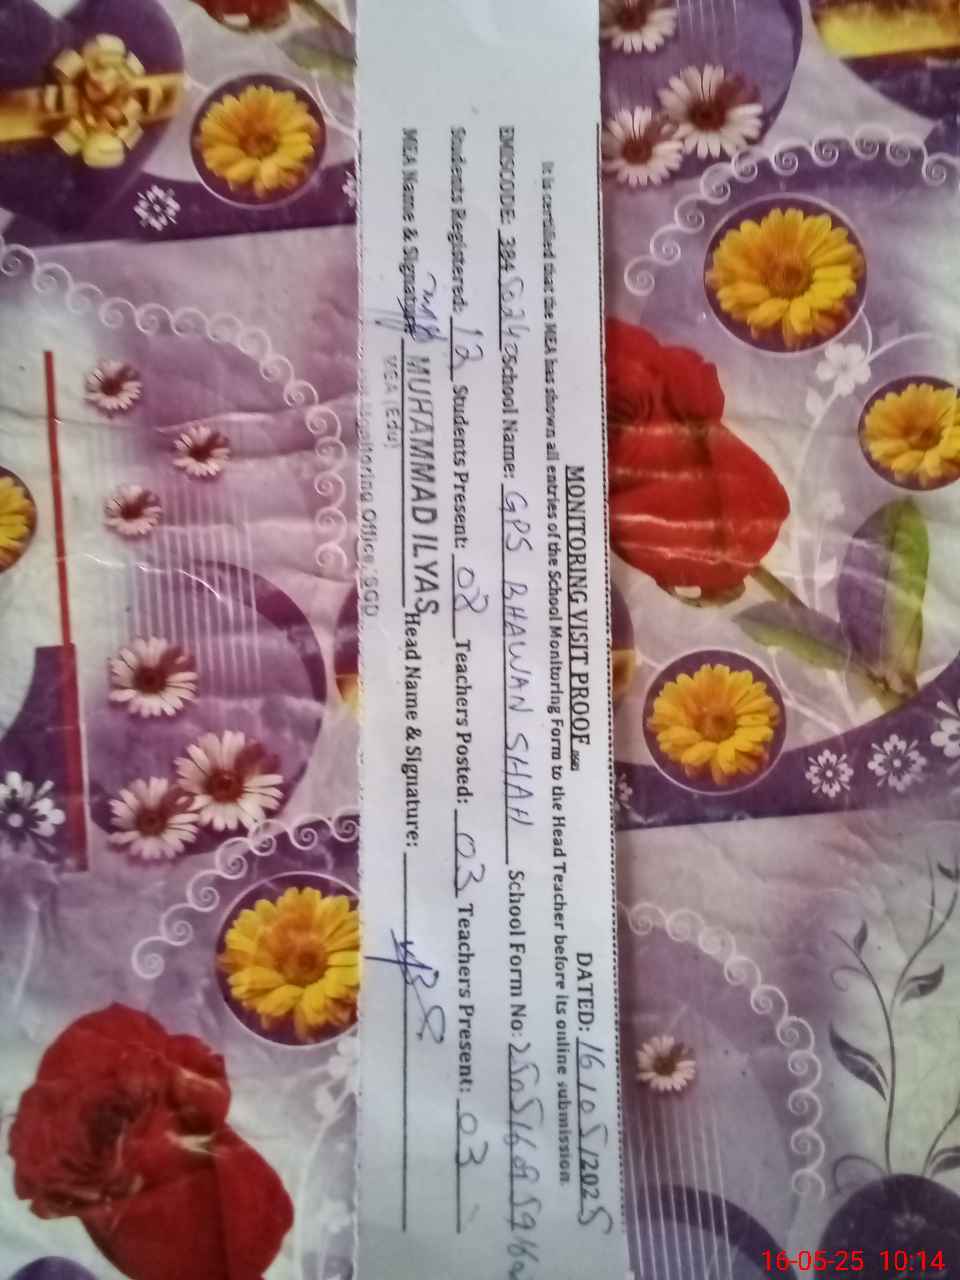 MONITORING VISIT PROOF DATED: 16/05/2025
It is certified that the MEA has shown all entries of the School Monitoring Form to the Head Teacher before its online submission.
EMISCODE: 384 School Name: GPS BHAWAN SHAH School Form No:
Students Registered: 12 Students Present: 08 Teachers Posted: 03 Teachers Present: 03
MEA Name & Signature MUHAMMAD ILYAS Head Name & Signature:
MEA (Edu)
Monitoring Office, SGD
16-05-25 10:14